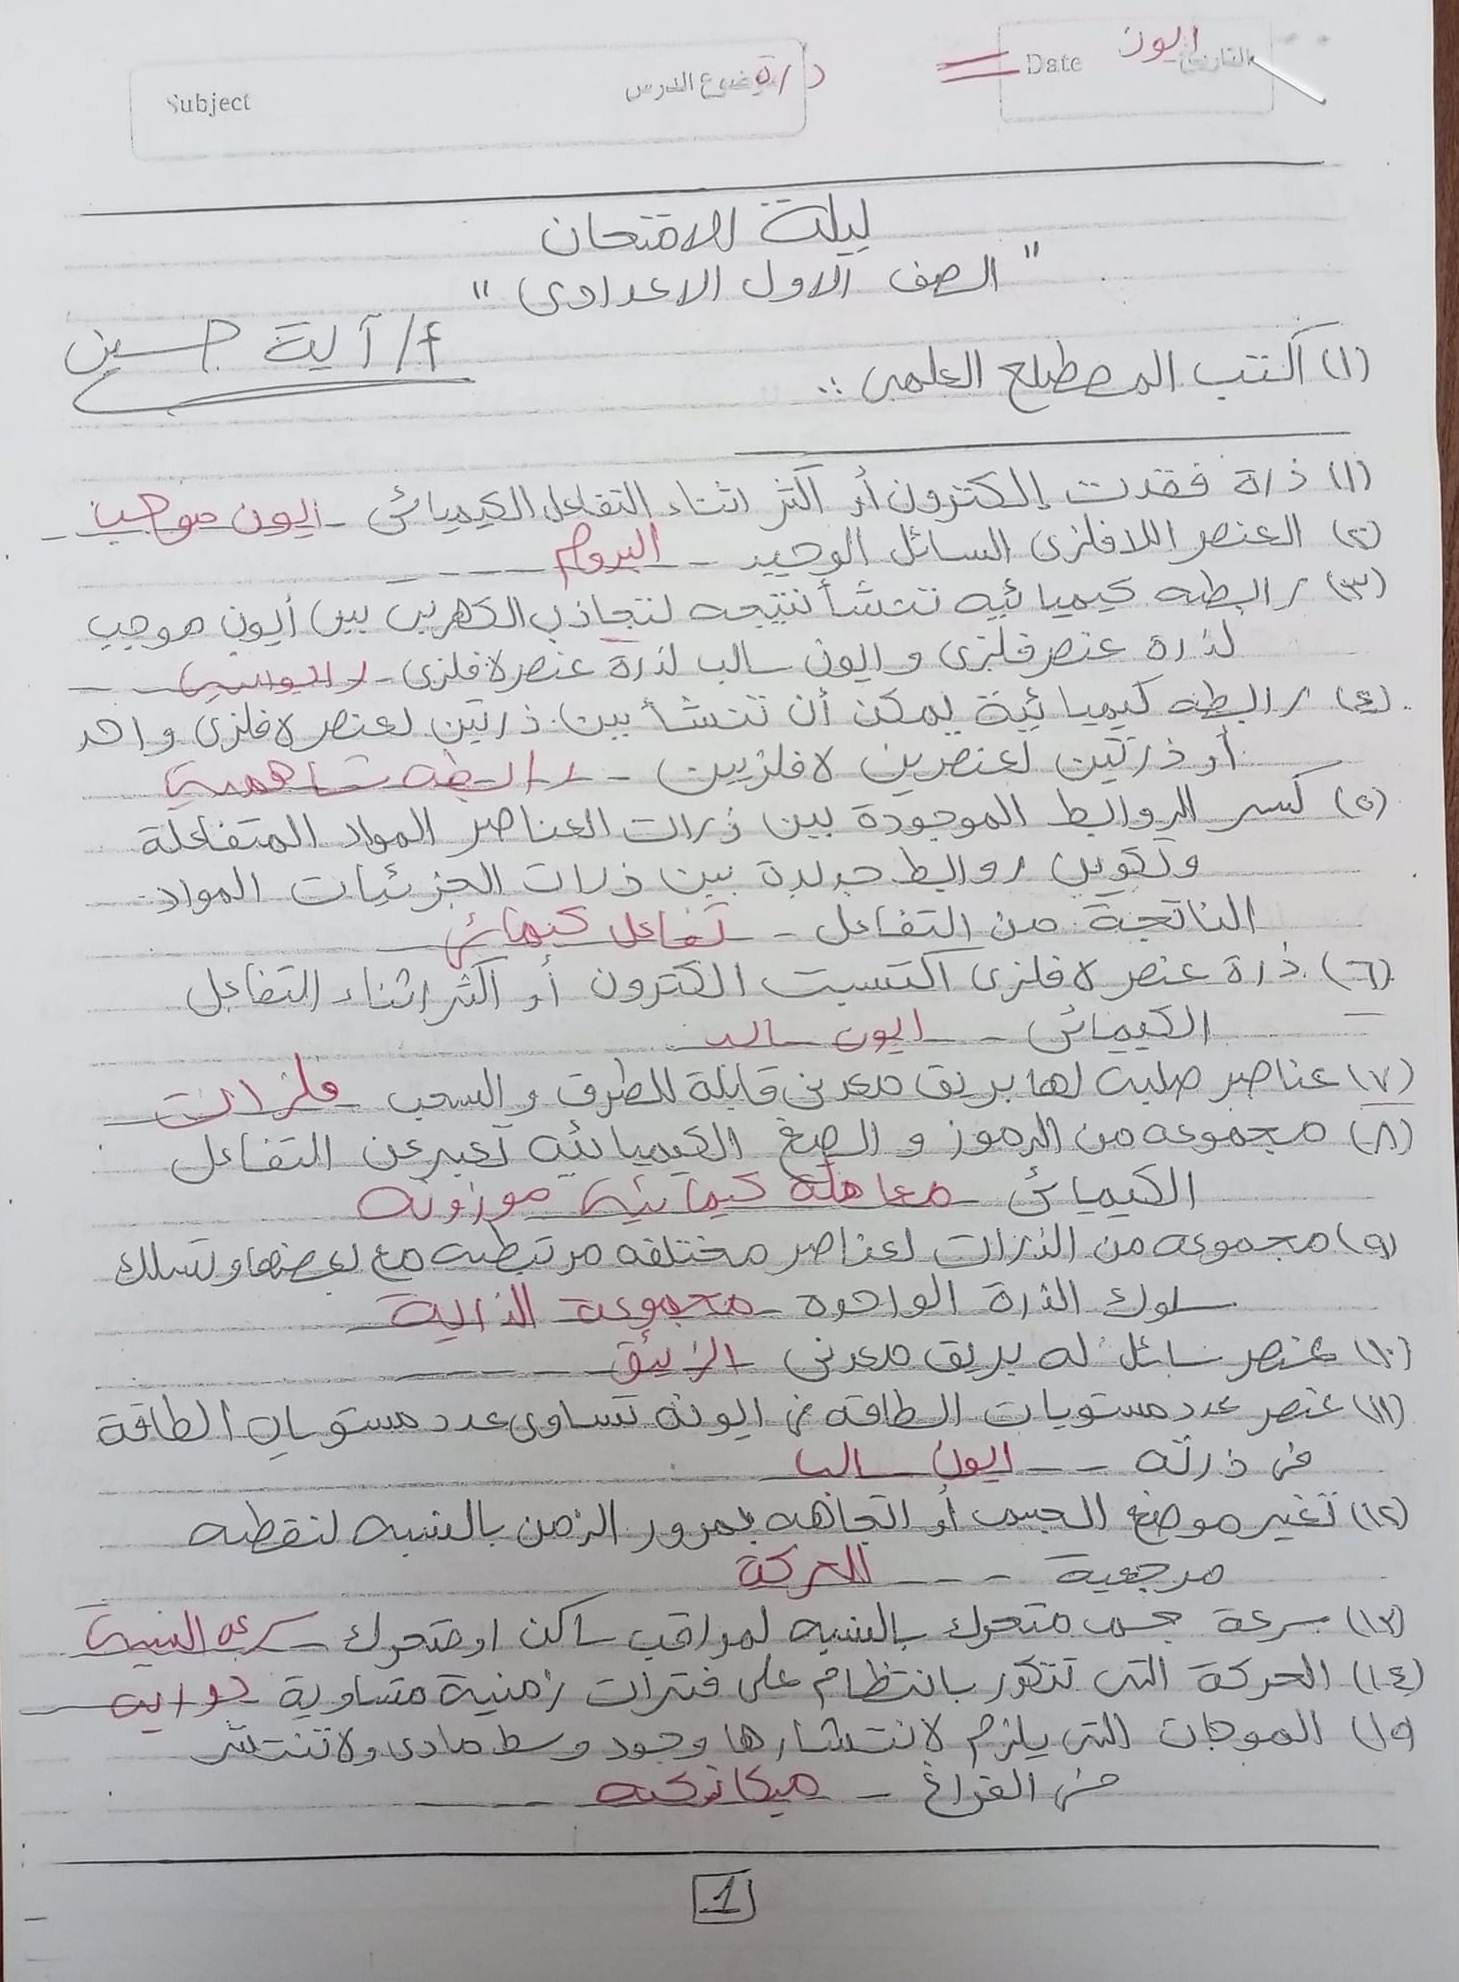 ايون = Date التاريخ
ذرة موضوع الدرس Subject
ليلة الامتحان
"الصف الاول الاعدادى"
أ/ آية حسين
(١) اكتب المصطلح العلمى :.
(١) ذرة فقدت إلكترون أو اكثر اثناء التفاعل الكيميائى - ايون موجب -
(٢) العنصر اللافلزى السائل الوحيد - البروم - - - -
(٣) رابطه كيميائيه تنشأ نتيجه لتجاذب الكهربى بين أيون موجب
لذرة عنصر فلزى و ايون سالب لذرة عنصر لافلزى -
(٤) رابطه كيميائية يمكن أن تنشأ بين ذرتين لعنصر لافلزى واحد
أو ذرتين لعنصرين لافلزيين - رابطه تساهمية
(٥) كسر الروابط الموجودة بين ذرات العناصر المواد المتفاعلة
وتكوين روابط جديدة بين ذرات الجزيئات المواد
الناتجة من التفاعل - تفاعل كيمائى
(٦) ذرة عنصر لافلزى اكتسبت الكترون أو اكثر اثناء التفاعل
الكيميائى - ايون سالب
(٧) عناصر صلبه لها بريق معدنى قابلة للطرق و السحب فلزات
(٨) مجموعه من الرموز و الصيغ الكيميائيه تعبر عن التفاعل
الكيميائى معادلة كيمائية موزونه
(٩) مجموعه من الذرات لعناصر مختلفه مرتبطه مع بعضها وتسلك
سلوك الذرة الواحده - مجموعة الذرية
(١٠) عنصر سائل له بريق معدنى الزئبق - - - -
(١١) عنصر عدد مستويات الطاقه فى ايونه تساوى عدد مستويات الطاقة
فى ذرته - - ايون سالب
(١٢) تغير موضع الجسم أو اتجاهه بمرور الزمن بالنسبه لنقطه
مرجعية - - - الحركة
(١٣) سرعة جسم متحرك بالنسبه لمراقب ساكن او متحرك - سرعه النسبية
(١٤) الحركة التى تتكرر بانتظام على فترات زمنية متساوية دورايه
١٥) الموجات التى يلزم لانتشارها وجود وسط مادى ولا تنتشر
فى الفراغ - ميكانيكيه - - -
1